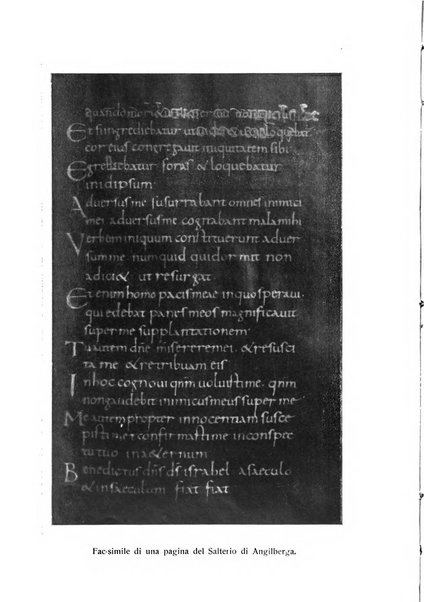 quando mori
Et si ingrediebatur ut loqueba
cor eius congregauit iniquitatem sibi
Egrediebatur foras & loquebatur
inidipsum
Aduersus me susurrabant omnes inimici
mei aduersus me cogitabant mala mihi
Verbum iniquum constituerunt aduer
sum me numquid qui dormit non
adici& ut resurgat
Etenim homo pacis meae in quo speraui
qui edebat panes meos magnificauit
super me supplantationem
Tu autem dne miserere mei & resusci
ta me & retribuam eis
In hoc cognoui qnm uoluisti me qnm
non gaudebit inimicus meus super me
Me autem propter innocentiam susce
pisti me & confirmasti me in conspec
tu tuo in a&ernum
Benedictus dns ds israhel a saeculo
& in saeculum fiat fiat
Fac-simile di una pagina del Salterio di Angilberga.